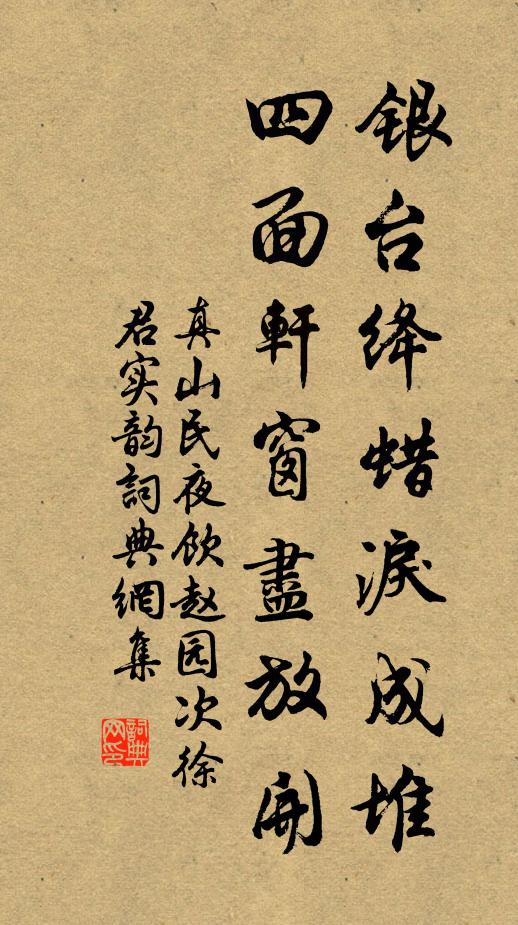 银台绛蜡淚成堆
四面軒窗盡放開
真山民夜饮赵园次徐
君实韵詞典網集
詞典網印